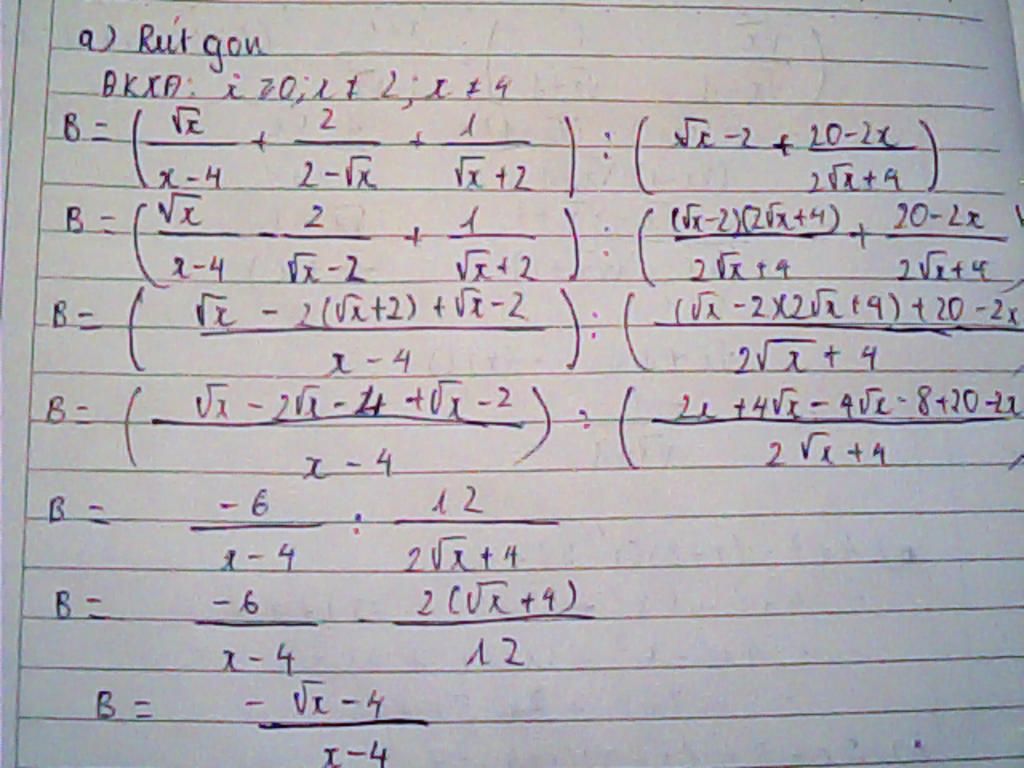 a) Rút gọn
ĐKXĐ: x ≥ 0; x ≠ 2; x ≠ 4
B = (√x/(x-4) + 2/(2-√x) + 1/(√x+2)) : (√x-2 + (20-2x)/(2√x+4))
B = (√x/(x-4) - 2/(√x-2) + 1/(√x+2)) : ((√x-2)(2√x+4)/(2√x+4) + (20-2x)/(2√x+4))
B = ((√x - 2(√x+2) + √x-2)/(x-4)) : (((√x-2)(2√x+4) + 20-2x)/(2√x+4))
B = ((√x - 2√x - 4 + √x - 2)/(x-4)) : ((2x + 4√x - 4√x - 8 + 20 - 2x)/(2√x+4))
B = -6/(x-4) : 12/(2√x+4)
B = -6/(x-4) · 2(√x+4)/12
B = (-√x-4)/(x-4)